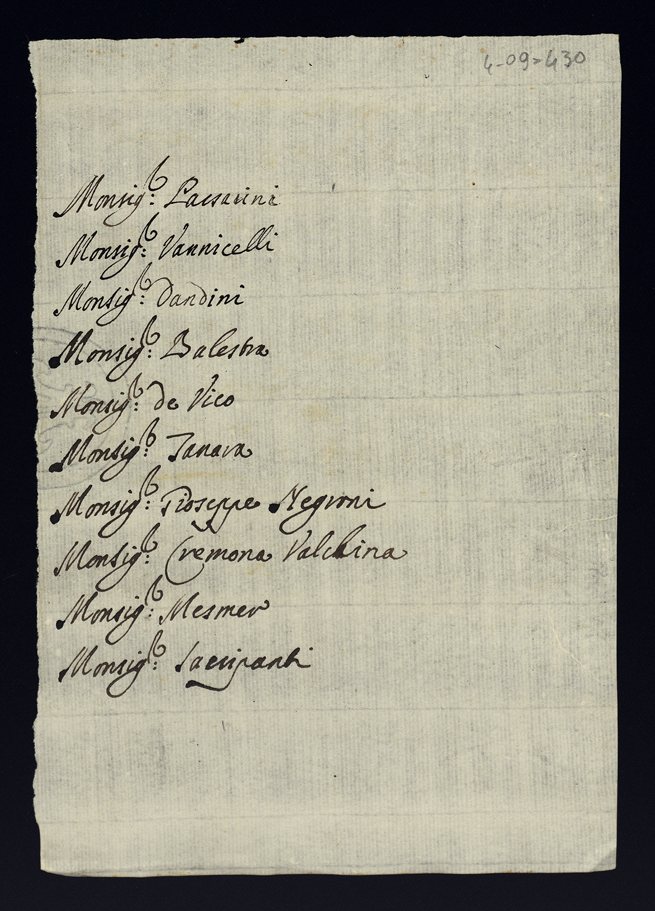 4-09-430
Monsig.r: Passarini
Monsig.r: Vannicelli
Monsig.r: Dandini
Monsig.r: Balestra
Monsig.r: de Vico
Monsig.r: Tanara
Monsig.r: Gioseppe Negroni
Monsig.r: Cremona Valdina
Monsig.r: Mesmer
Monsig.r: Sacripanti